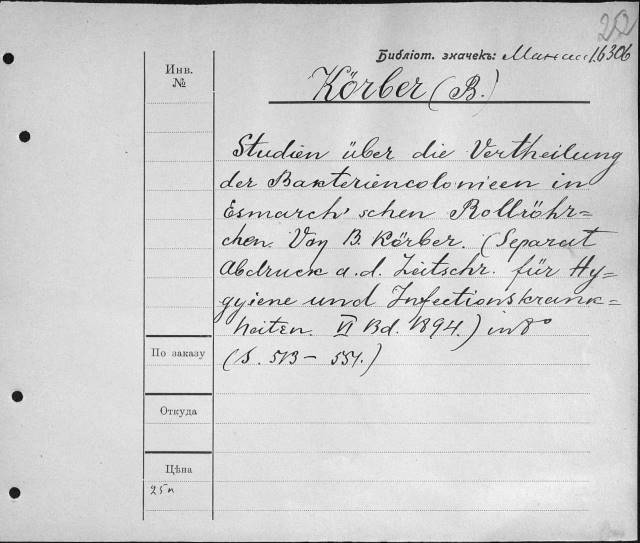 22
Библіот. значекъ: 16306
Инв.
№
Körber (B.)
Studien über die Vertheilung
der Bakteriencolonieen in
Esmarch'schen Rollröhr=
chen. Von B. Körber. (Separat
Abdruck a. d. Zeitschr. für Hy=
gyiene und Infectionskrank=
heiten. VI Bd. 1894.) in 8°
(S. 513 – 554.)
По заказу
Откуда
Цѣна
25 к